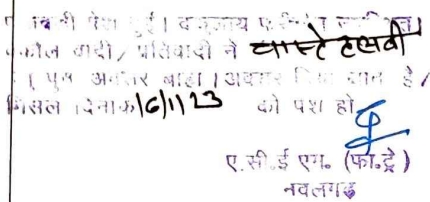 पेश हुई।
वकील वादी/ प्रतिवादी ने वास्ते तलबी
अवसर चाहा। अवसर दिया जाता है/
मिसल दिनांक 16/1/23 को पेश हो
ए.सी.ई एम. (फा.ट्रे)
नवलगढ